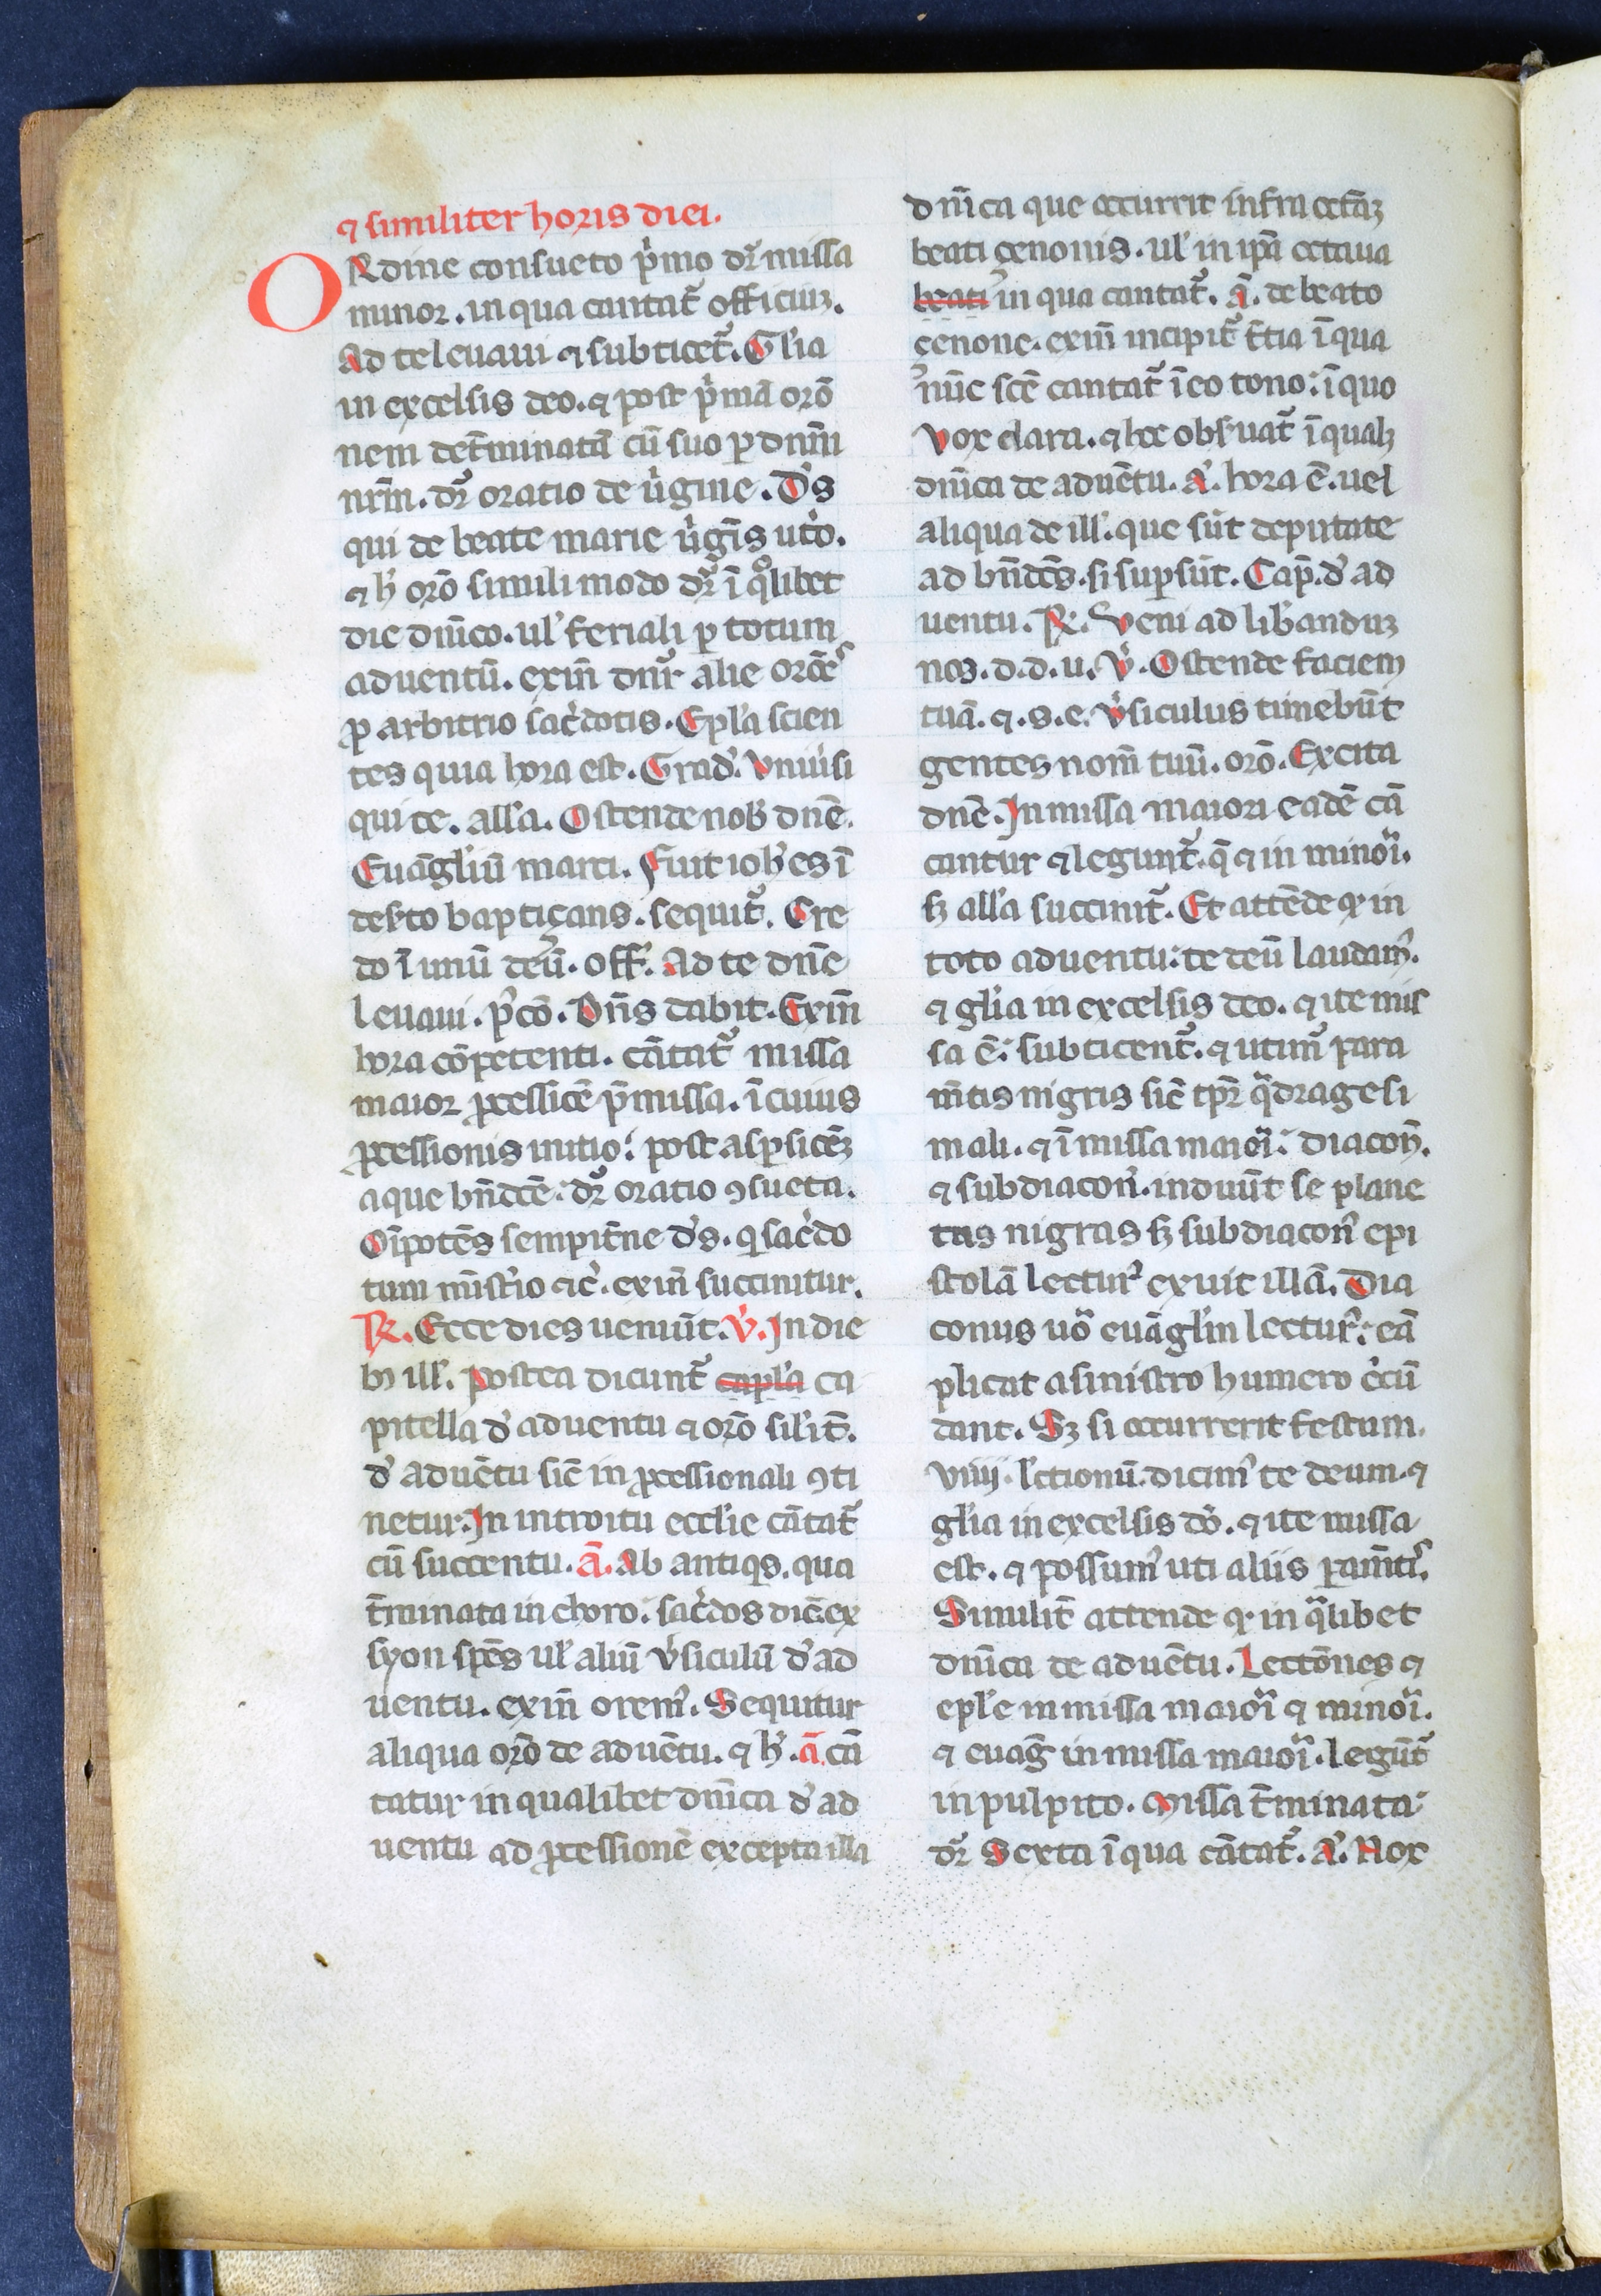 ⁊ similiter horis diei.
ORdine consueto p̾mo dr̄ missa
minor. in qua cantat᷑ officiuꝫ.
Ad te leuaui ⁊ subticet᷑. Gl'ia
in excelsis deo. ⁊ post p̾mā orō
nem det̄minatā cū suo ꝑ dnm̄
nrm̄. dr̄ oratio de u̾gine. D's
qui de beate marie u̾gīs ut̾o.
⁊ h̾ orō simili modo dr̄ ī qͦlibet
die dnīco. ul' feriali ꝑ totum
aduentū. exin̄ dn̄r alie orōēs
ꝓ arbitrio sac̾dotis. Epl'a scien
tes quia hora est. Grad'. Vniu̾si
qui te. all'a. Ostende nob̾ dn̄e.
Euāgl'iū marci. Fuit ioh'es ī
des̾to baptiçans. sequit᷑. Cre
do ī unū deū. off̾. Ad te dn̄e
leuaui. p̾cō. Dn̄s dabit. Exin̄
hora cōpetenti. cātat᷑ missa
maior ꝓcessiōe p̄missa. ī cuius
ꝓcessionis initio: post asꝑsiōeꝫ
aque bn̄dcē: dr̄ oratio ꝯsueta.
Oīpotēs sempit̄ne d's. q̾ sac̾do
tum mīst̾io ⁊c̾. exin̄ succinitur.
℟. Ecce dies ueniūt. V̾. In die
bꝫ ill'. Postea dicunt᷑ capl'a ca
pitella d' aduentu ⁊ orō sil'it̄.
d' aduētu sic̄ in ꝓcessionali ꝯti
netur. In introitu eccl'ie cātat᷑
cū succentu. ā. Ab antiqs. qua
t̄minata in choro: sac̾dos dic̄. ex
syon spēs ul' aliū v̾siculū d' ad
uentu. exin̄ orem̾. Sequitur
aliqua orō de aduētu. ⁊ h̾. ā. cā
tatur in qualibet dnīca d' ad
uentu ad ꝓcessionē excepta illa
dnīca que occurrit infra octāꝫ
beati çenonis. ul' in ip̄a octaua
beati in qua cantat᷑. ā. de beato
çenone. exin̄ incipit᷑ t̄tia ī qua
nūc scē cantat᷑ ī eo tono: ī quo
Vox clara. ⁊ hoc obs̾uat᷑ ī qualꝫ
dnīca de aduētu. A'. hora ē. uel
aliqua de ill'. que sūt deputate
ad bn̄dcēs. si suꝑsūt. Cap̄. d' ad
uentu. ℟. Veni ad lib̾anduꝫ
nos. d. d. u. V̾. Ostende faciem
tuā. ⁊. s. e. V̾siculus timebūt
gentes nom̄ tuū. orō. Excita
dn̄e. In missa maiori eadē cā
cantur ⁊ legunt᷑. q̄ ⁊ in minoi̾.
sꝫ all'a succinit᷑. Et attēde ꝙ in
toto aduentu: te deū laudam̾.
⁊ gl'ia in excelsis deo. ⁊ ite mis
sa ē: subticent᷑. ⁊ utim̾ para
mtīs nigris sic̄ tp̄r qᷓdragesi
mali. ⁊ ī missa maioi̾: diacon̾.
⁊ subdiacon̾. induūt se plane
tas nigras sꝫ subdiacon̾ epi
stolā lectur̾ exuit illā. Dia
conus uō euāgl'm lectur̾: eā
plicat a sinistro humero c̾cū
dant. Sꝫ si occurrerit festum.
viiij. l'ctionū. dicim̾ te deum. ⁊
gl'ia in excelsis dō. ⁊ ite missa
est. ⁊ possum̾ uti aliis ꝑam̄tis.
Similit̄ attende ꝙ in qᷓlibet
dnīca de aduētu. Lectōnes ⁊
epl'e in missa maioi̾ ⁊ minoi̾.
⁊ euāg in missa maioi̾. legūt᷑
in pulpito. Missa t̄minata:
dr̄ Sexta ī qua cātat᷑. A'. Nox